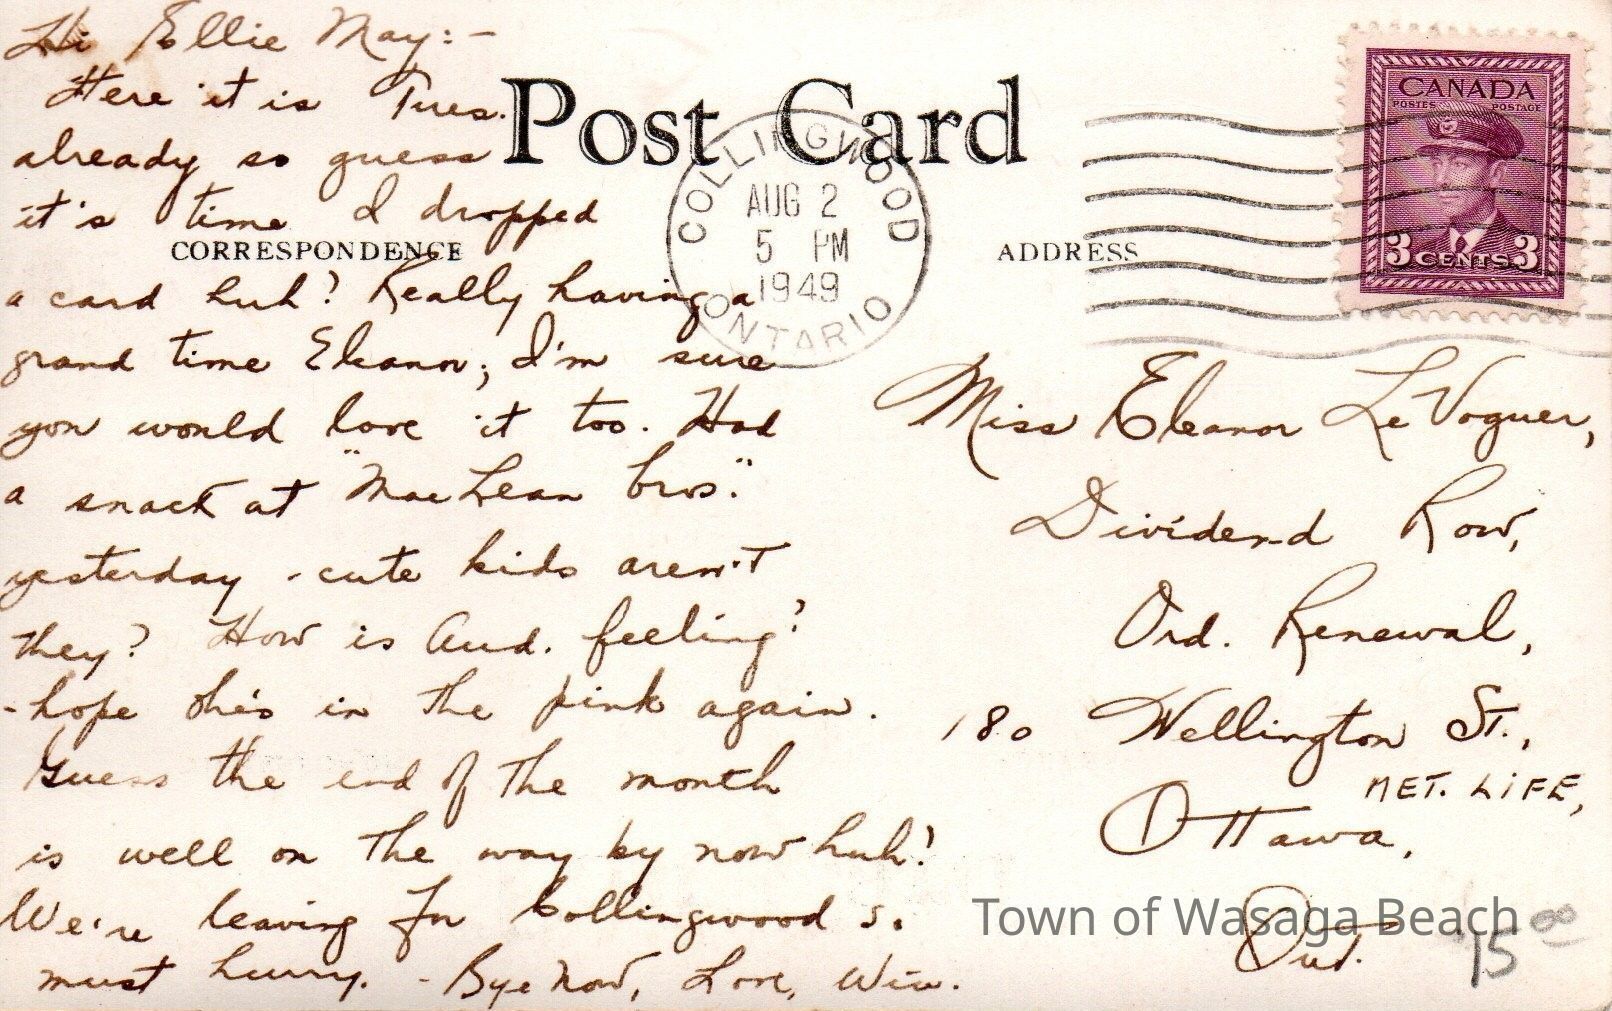 Hi Ellie May:-
Here it is Tues.
already so guess
it's time I dropped
a card huh? Really having a
grand time Eleanor; I'm sure
you would love it too. Had
a snack at "MacLean Bros."
yesterday - cute kids aren't
they? How is Aud. feeling?
-hope she's in the pink again.
Guess the end of the month
is well on the way by now huh!
We're leaving for Collingwood s.
must hurry. - Bye Now, Love, Win.
Post Card
CORRESPONDENCE
ADDRESS
COLLINGWOOD
AUG 2
5 PM
1949
ONTARIO
CANADA
POSTES POSTAGE
3 CENTS 3
Miss Eleanor LeVoguer,
Dividend Row,
Ord. Renewal,
180 Wellington St.,
MET. LIFE,
Ottawa,
Ont.
Town of Wasaga Beach
15 00